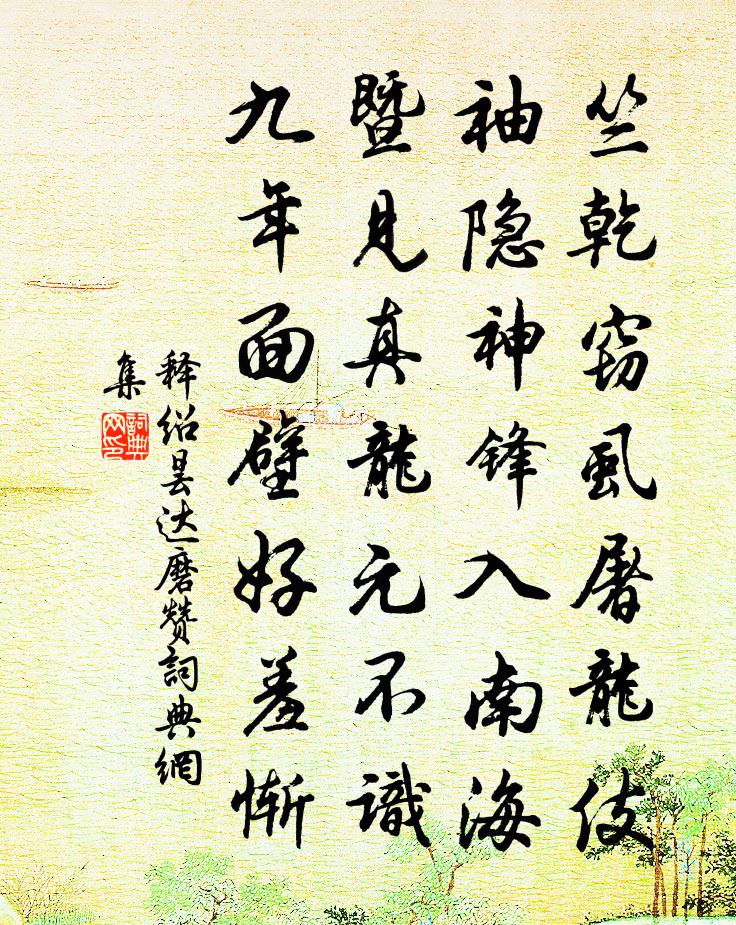 竺乾窃虱屠龍伎
袖隐神锋入南海
暨见真龍元不識
九年面壁好羞惭
释绍昙达磨赞詞典網
集
詞典
网印